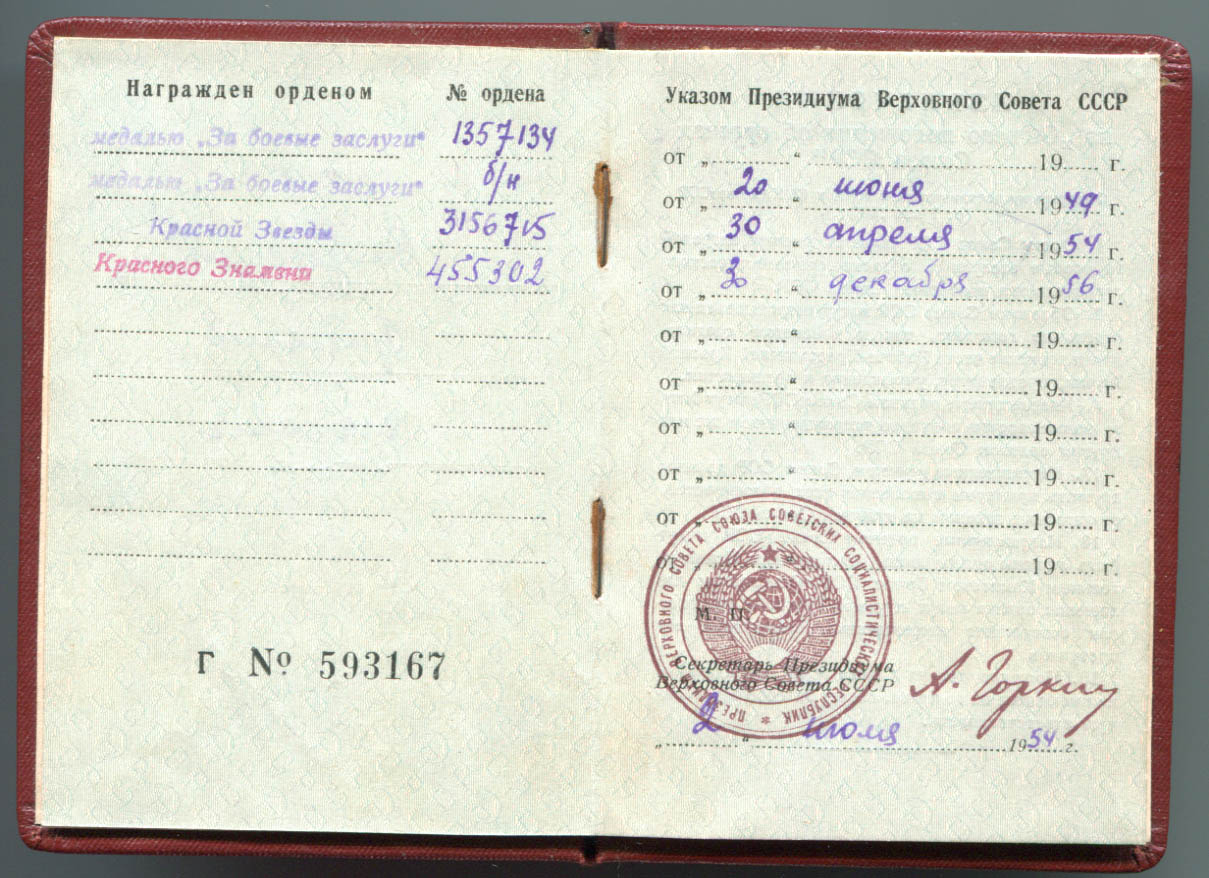 Награжден орденом № ордена
медалью „За боевые заслуги“ 1357134
медалью „За боевые заслуги“ б/н
Красной Звезды 3156715
Красного Знамени 455302
Г № 593167
Указом Президиума Верховного Совета СССР
от „ “ 19 г.
от „ 20 “ июня 1949 г.
от „ 30 “ апреля 1954 г.
от „ 30 “ декабря 1956 г.
от „ “ 19 г.
от „ “ 19 г.
от „ “ 19 г.
от „ “ 19 г.
от „ “ 19 г.
от „ “ 19 г.
ПРЕЗИДИУМ ВЕРХОВНОГО СОВЕТА СОЮЗА СОВЕТСКИХ СОЦИАЛИСТИЧЕСКИХ РЕСПУБЛИК
М. П.
Секретарь Президиума
Верховного Совета СССР А. Горкин
„ 2 “ июля 1954 г.